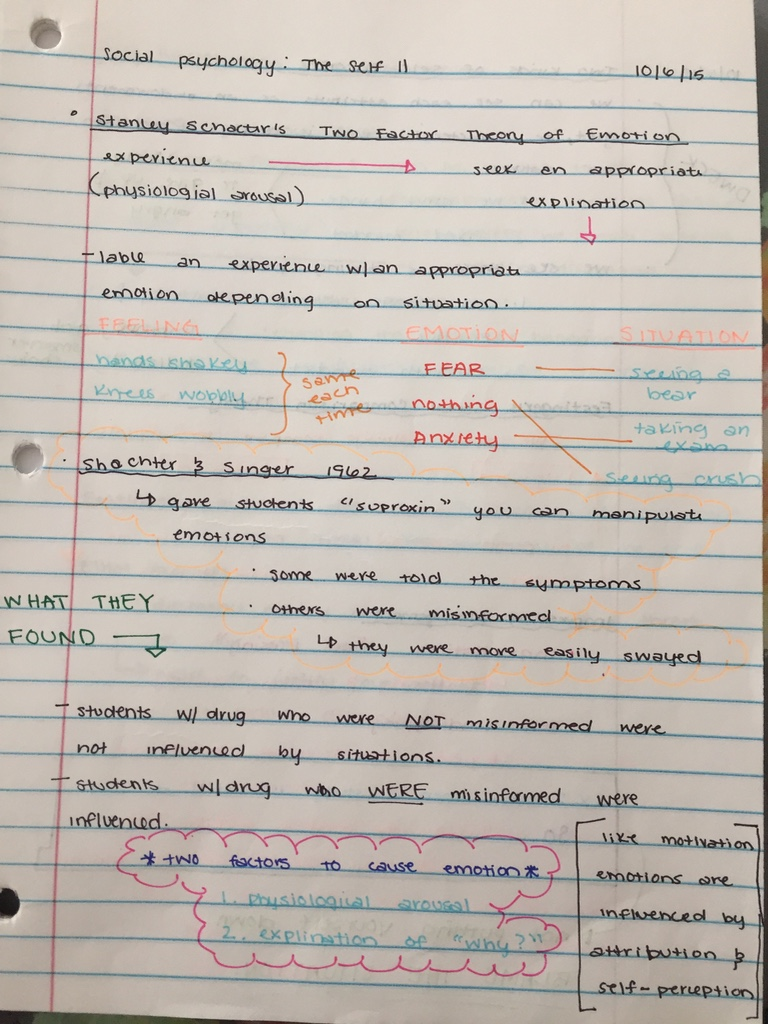 social psychology: The self II 10/6/15
• Stanley Schactir's Two Factor Theory of Emotion
experience → seek an appropriate
(physiologial arousal) explination
↓
- lable an experience w/an appropriate
emotion depending on situation.
FEELING EMOTION SITUATION
hands shakey FEAR seeing a
knees wobbly nothing bear
same
each
time
Anxiety taking an
exam
seeing crush
• Shachter & Singer 1962
↳ gave students "suproxin" you can manipulate
emotions
• some were told the symptoms
WHAT THEY • others were misinformed
FOUND ↳ they were more easily swayed
- students w/ drug who were NOT misinformed were
not influenced by situations.
- students w/drug who WERE misinformed were
influenced.
* two factors to cause emotion *
1. physiological arousal
2. explination of "why?"
like motivation
emotions are
influenced by
attribution &
self-perception